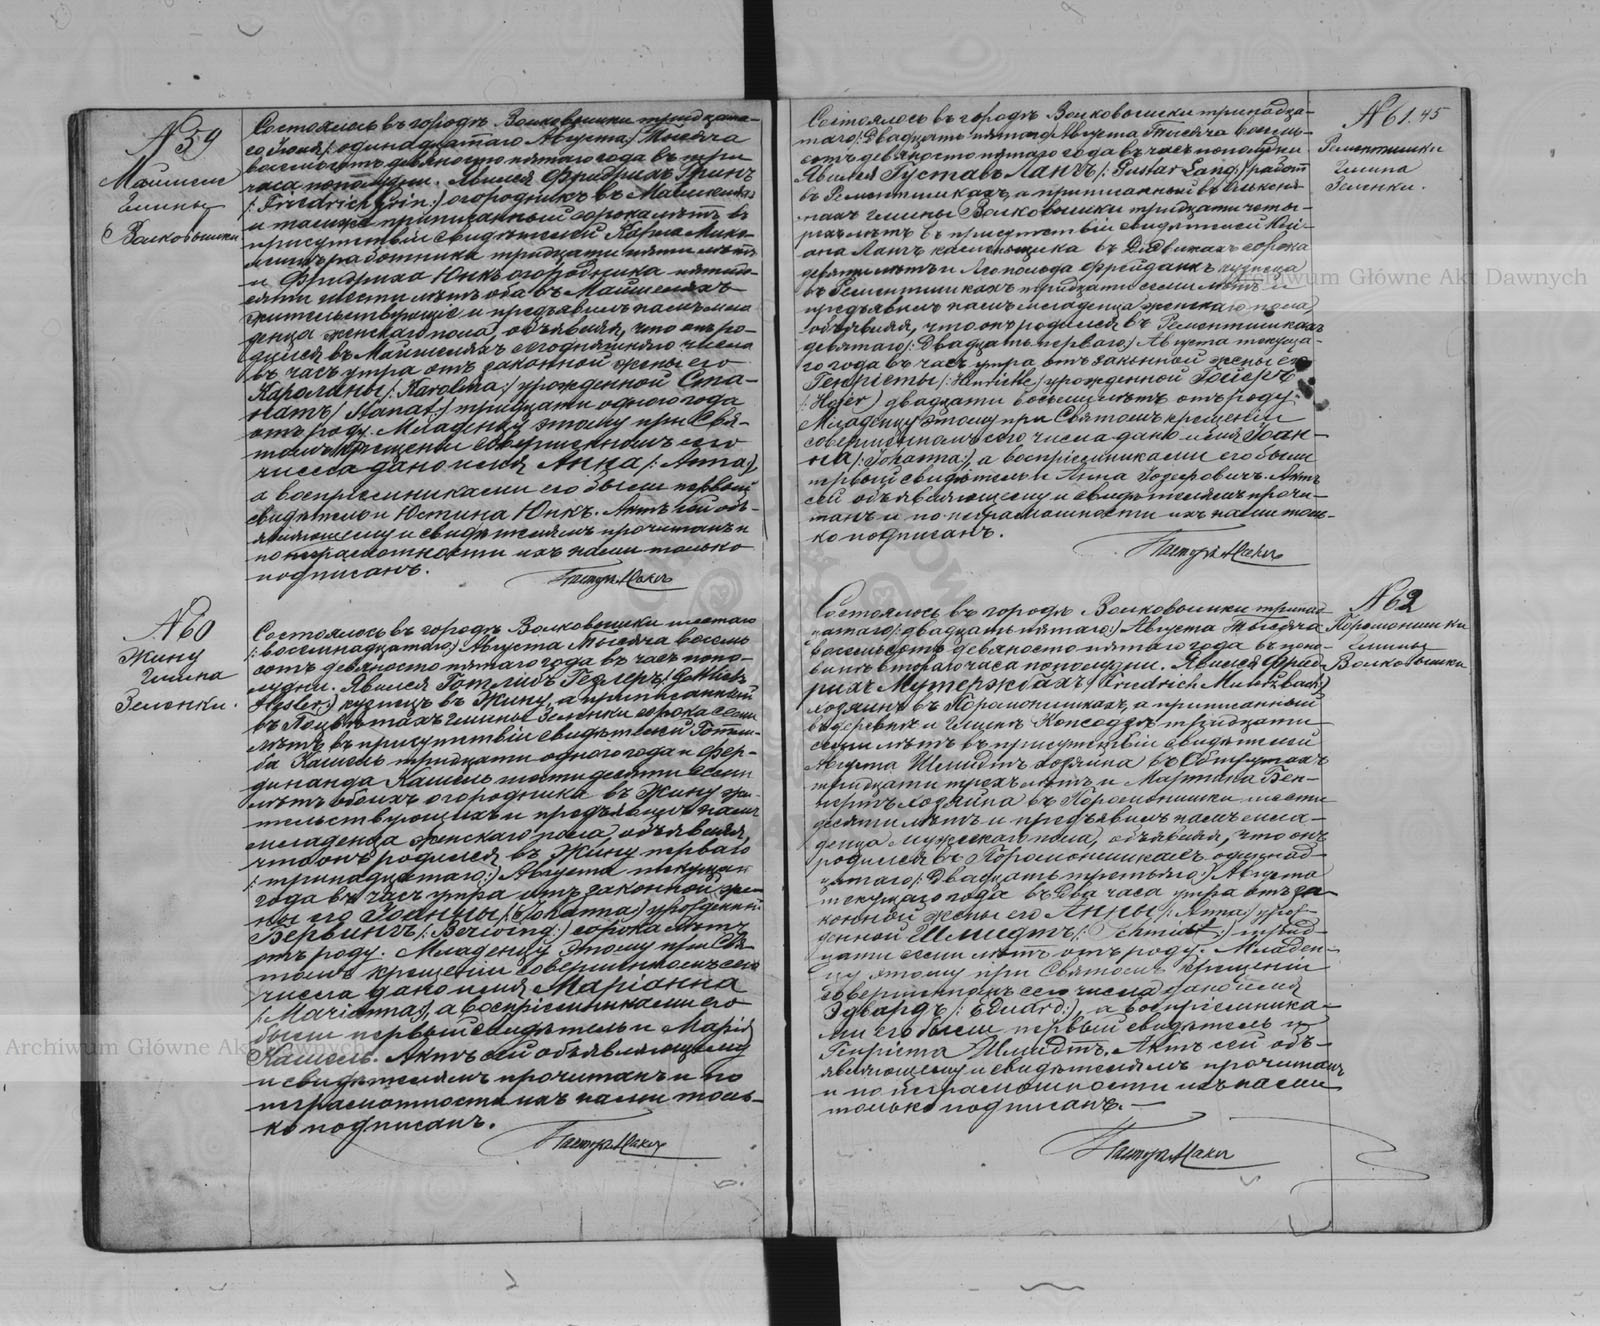 № 59
Маишеле
Гмины
Волковышки
Состоялось въ городѣ Волковышки тридцата-
го Іюля /: одинадцатаго Августа :/ тысяча
восемьсотъ девяносто пятаго года въ три
часа пополудни. Явился Фридрихъ Гринъ
/: Fridrich Grin :/ огородникъ въ
и тамже приписанный сорока лѣтъ, въ
присутствіи свидѣтелей Карла
работника тридцати пяти лѣтъ
и Фридриха Юнкъ огородника пятьде-
сяти шести лѣтъ оба въ Маишеляхъ
жительствующіе и предъявилъ намъ мла-
денца женскаго пола, объявляя, что онъ ро-
дился въ Маишеляхъ сегодняшняго числа
въ часъ утра отъ законной жены его
Каролины /: Karolina :/ урожденной Ста-
натъ /: Stanat :/ тридцати одного года
отъ роду. Младенцу этому при Свя-
томъ крещеніи совершенномъ сего
числа дано имя Анна /: Anna :/,
а воспріемниками его были первый
свидѣтель и Юстина Юнкъ. Актъ сей объ-
являющему и свидѣтелямъ прочитанъ и
по неграмотности ихъ нами только
подписанъ.
Пасторъ
№ 60
Жину
Гмина
Зеленки.
Состоялось въ городѣ Волковышки шестаго
/: восемнадцатаго :/ Августа тысяча восемь-
сотъ девяносто пятаго года въ часъ попо-
лудни. Явился Готлибъ Геслеръ /: Gottlieb
Hesler :/ кузнецъ въ Жину, а приписанный
въ гмины Зеленки сорока семи
лѣтъ, въ присутствіи свидѣтелей Готли-
ба Кашель тридцати одного года и Фер-
динанда Кашель шестидесяти семи
лѣтъ обоихъ огородника въ Жину жи-
тельствующихъ и предъявилъ намъ
младенца женскаго пола, объявляя,
что онъ родился въ Жину перваго
/: тринадцатаго :/ Августа текущаго
года въ часъ утра отъ законной же-
ны его Іоанны /: Johanna :/ урожденной
Бервингъ /: Berwing :/ сорока лѣтъ
отъ роду. Младенцу этому при Свя-
томъ крещеніи совершенномъ сего
числа дано имя Маріанна
/: Marianna :/, а воспріемниками его
были первый свидѣтель и Марія
Кашель. Актъ сей объявляющему
и свидѣтелямъ прочитанъ и по
неграмотности ихъ нами толь-
ко подписанъ.
Пасторъ
№ 61. 45
Рементишки
Гмина
Зеленки.
Состоялось въ городѣ Волковышки тринадца-
таго /: двадцать пятаго :/ Августа тысяча восемь-
сотъ девяносто пятаго года въ часъ пополудни.
Явился Густавъ Лангъ /: Gustav Lang :/ работ.
въ Рементишкахъ, а приписанный въ
гмины Волковышки тридцати четы-
рехъ лѣтъ, въ присутствіи свидѣтелей
Лангъ каменьщика въ сорока
девяти лѣтъ и Леопольда Фрейданкъ кузнеца
въ Рементишкахъ тридцати семи лѣтъ и
предъявилъ намъ младенца женскаго пола,
объявляя, что онъ родился въ Рементишкахъ
девятаго /: двадцать перваго :/ Августа текуща-
го года въ часъ утра отъ законной жены его
Генріеты /: Henriette :/ урожденной Гойеръ
/: Hojer :/ двадцати восьми лѣтъ отъ роду.
Младенцу этому при Святомъ крещеніи
совершенномъ сего числа дано имя Іоан-
на /: Johanna :/, а воспріемниками его были
первый свидѣтель и Анна Актъ
сей объявляющему и свидѣтелямъ прочи-
танъ и по неграмотности ихъ нами толь-
ко подписанъ.
Пасторъ
№ 62
Поромонишки
Гмины
Волковышки
Состоялось въ городѣ Волковышки тринад-
цатаго /: двадцать пятаго :/ Августа тысяча
восемьсотъ девяносто пятаго года въ поло-
винѣ втораго часа пополудни. Явился Фрид-
рихъ /: Friedrich
хозяинъ въ Поромонишкахъ, а приписанный
въ деревнѣ и гминѣ тридцати
семи лѣтъ въ присутствіи свидѣтелей
Августа Шмидтъ хозяина въ
тридцати трехъ лѣтъ и Мартина Бен-
нертъ хозяина въ Поромонишки шести-
десяти лѣтъ и предъявилъ намъ мла-
денца мужескаго пола, объявляя, что онъ
родился въ Поромонишкахъ одиннад-
цатаго /: двадцать третьяго :/ Августа
текущаго года въ два часа утра отъ за-
конной жены его Анны /: Anna :/ урож-
денной Шмидтъ /: Schmidt :/ трид-
цати семи лѣтъ отъ роду. Младен-
цу этому при Святомъ крещеніи
совершенномъ сего числа дано имя
Эдвардъ /: Eduard :/, а воспріемника-
ми его были первый свидѣтель и
Генріета Шмидтъ. Актъ сей объ-
являющему и свидѣтелямъ прочитанъ
и по неграмотности ихъ нами
только подписанъ.
Пасторъ
Archiwum Główne Akt Dawnych
Archiwum Główne Akt Dawnych